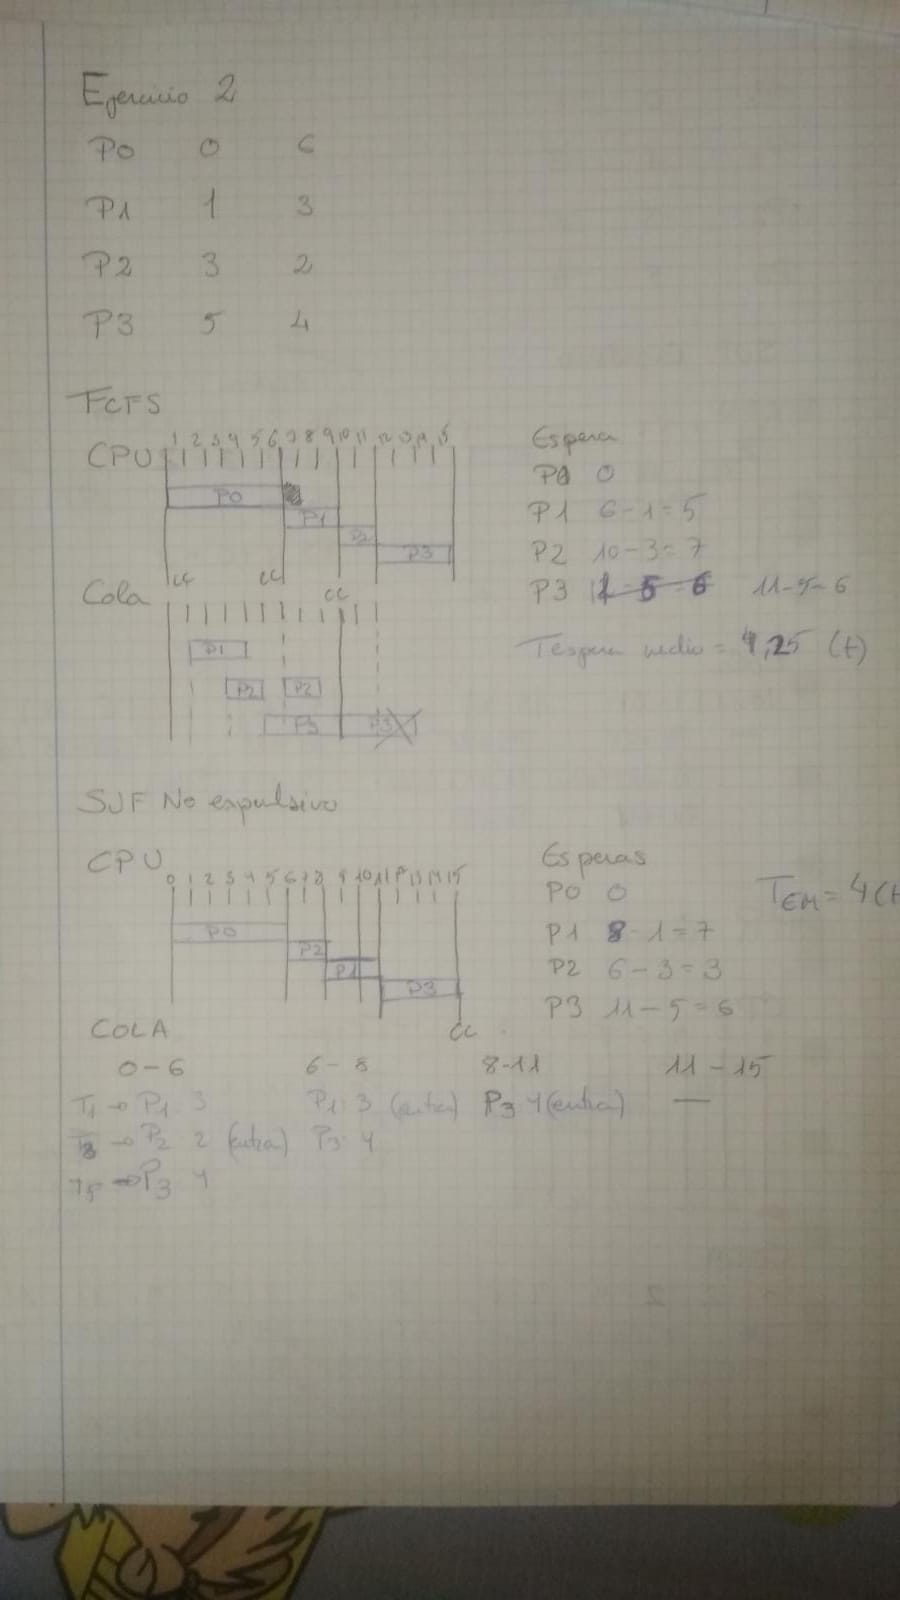 Ejercicio 2
P0 0 6
P1 1 3
P2 3 2
P3 5 4
FCFS
1 2 3 4 5 6 7 8 9 10 11 12 13 14 15
CPU
P0
P1
P2
P3
CC CC CC
Cola
P1
P2 P2
P3 P3
Espera
P0 0
P1 6-1=5
P2 10-3=7
P3 11-5=6
Tespera medio = 4,25 (t)
SJF No expulsivo
CPU
0 1 2 3 4 5 6 7 8 9 10 11 12 13 14 15
P0
P2
P1
P3
CC
Esperas
P0 0
P1 8-1=7
P2 6-3=3
P3 11-5=6
TEM = 4 (t
COLA
0-6 6-8 8-11 11-15
T1 → P1 3 P1 3 (entra) P3 4 (entra) —
T3 → P2 2 (entra) P3 4
T5 → P3 4